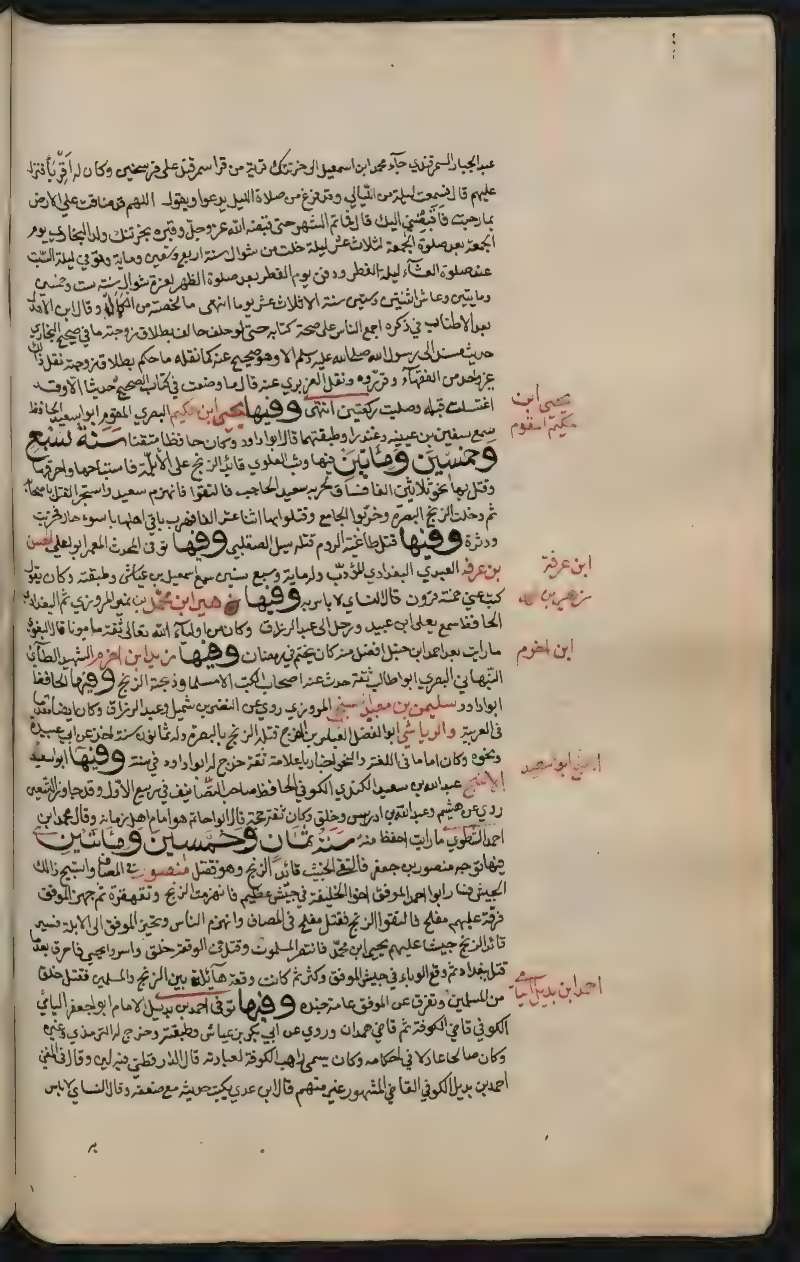 عبد الجبار السمرقندي جاء محمد ابن اسمعيل الى خرتنك قرية من قرا سمرقند على فرسخين وكان له اقرباء فنزل
عليهم قال فسمعت ليلة من الليالي وقد فرغ من صلاة الليل يدعوا ويقول اللهم قد ضاقت علي الارض
بما رحبت فاقبضني اليك قال فما تم الشهر حتى قبضه الله عز وجل وقبره بخرتنك ولد البخاري يوم
الجمعة بعد صلوة الجمعة لثلاث عشر ليلة خلت من شوال سنة اربع وتسعين وماية وتوفي ليلة السبت
عند صلوة العشاء ليلة الفطر ودفن يوم الفطر بعد صلوة الظهر بغرة شوال سنة ست وخمسين
ومايتين وعاش اثنتين وستين سنة الا ثلاث عشر يوما انتهى ما لخصته من الكمال وقال ابن الاهدل
بعد الاطناب في ذكره اجمع الناس على صحة كتابه حتى لو حلف حالف بطلاق زوجته ما في صحيح البخاري
حديث مسند الى رسول الله صلى الله عليه وسلم الا وهو صحيح عنه كما نقله ما حكم بطلاق زوجته نقل ذلك
غير واحد من الفقهاء وقرروه ونقل الفربري عنه قال ما وضعت في كتاب الصحيح حديثا الا وقد
اغتسلت قبله وصليت ركعتين انتهى وفيها يحيى ابن حكيم البصري المقوم ابو سعيد الحافظ
يحيى ابن
حكيم المقوم
سمع سفين بن عيينه وغندرا وطبقتهما قال ابو داود وكان حافظا متقنا سنة سبع
وخمسين ومأتين فيها وثب العلوي قائد الزنج على الأبلة فاستباحها واحرقها
وقتل بها نحو ثلاثين الفا فساق لحربه سعيد الحاجب فالتقوا فانهزم سعيد واستحر القتل باصحابه
ثم دخلت الزنج البصرة وخربوا الجامع وقتلوا بها اثنا عشر الفا فهرب باقي اهلها باسوء حال فخربت
ودثرت وفيها قتل طاغية الروم قتله بسيل الصقلبي وفيها توفي المحدث المعمر ابو علي الحسن
بن عرفه العبدي البغدادي المؤدب وله ماية وسبع سنين سمع اسمعيل بن عياش وطبقته وكان يقول
ابن عرفة
كتب عني خمسة قرون قال النساي لا باس به وفيها زهير ابن محمد بن نمير المروزي ثم البغدادي
زهير بن
الحافظ سمع يعلى ابن عبيد ورحل الى عبد الرزاق وكان من اولياء الله تعالى ثقة مامونا قال البغوي
ما رايت بعد احمد ابن حنبل افضل منه كان يختم في رمضان وفيها زيد ابن اخزم الشهيد الطائي
ابن اخزم
النبهاني البصري ابو طالب ثقة حدث عنه اصحاب الكتب الا مسلما وذبحته الزنج وفيها الحافظ
ابو داود سليمن بن معبد سنجي المروزي روى عن النضر بن شميل وعبد الرزاق وكان ايضا مقدما
في العربية والرياشي ابو الفضل العباس بن الفرج قتله الزنج بالبصرة وله ثمانون سنة اخذ عن ابي عبيدة
ونحوه وكان اماما في اللغة والنحو اخباريا علامة ثقة خرج له ابو داود في سننه وفيها ابو سعيد
الاشج عبد الله بن سعيد الكندي الكوفي الحافظ صاحب التصانيف في ربيع الاول وقد جاوز التسعين
اشج ابو سعيد
روى عن هشيم وعبد الله بن ادريس وخلق وكان ثقة حجة قال ابو حاتم هو امام اهل زمانه وقال محمد ابن
احمد الشطوي ما رايت احفظ منه سنة ثمان وخمسين ومأتين
فيها توجه منصور بن جعفر فالتقى الخبيث قائد الزنج وهو فقتل منصور في المصاف واستبيح ذلك
الجيش فسار ابو احمد الموفق اخو الخليفة في جيش عظيم فانهزمت الزنج وتقهقرة ثم جهز الموفق
فرقة عليهم مفلح فالتقوا الزنج فقتل مفلح في المصاف وانهزم الناس وتحيز الموفق الى الابلة فسير
قائد الزنج جيشا عليهم يحيى ابن محمد فانتصر المسلمون وقتل في الوقعة خلق واسروا يحيى فاحرق بعد
قتل ببغداد ثم وقع الوباء في جيش الموفق وكثر ثم كانت وقعة هائلة بين الزنج والمسلمين فقتل خلق
من المسلمين وتفرق عن الموفق عامة جنده وفيها توفي احمد بن بديل الامام ابو جعفر اليامي
احمد ابن بديل اليامي
الكوفي قاضي الكوفة ثم قاضي همدان وروي عن ابي بكر بن عياش وطبقته وخرج له الترمذي وغيره
وكان صالحا عادلا في احكامه وكان يسمى راهب الكوفة لعبادته قال الدارقطني فيه لين وقال في المغني
احمد بن بديل الكوفي القاضي المشهور غير متهم قال ابن عدي يكتب حديثه مع ضعفه وقال النساي لا باس
به